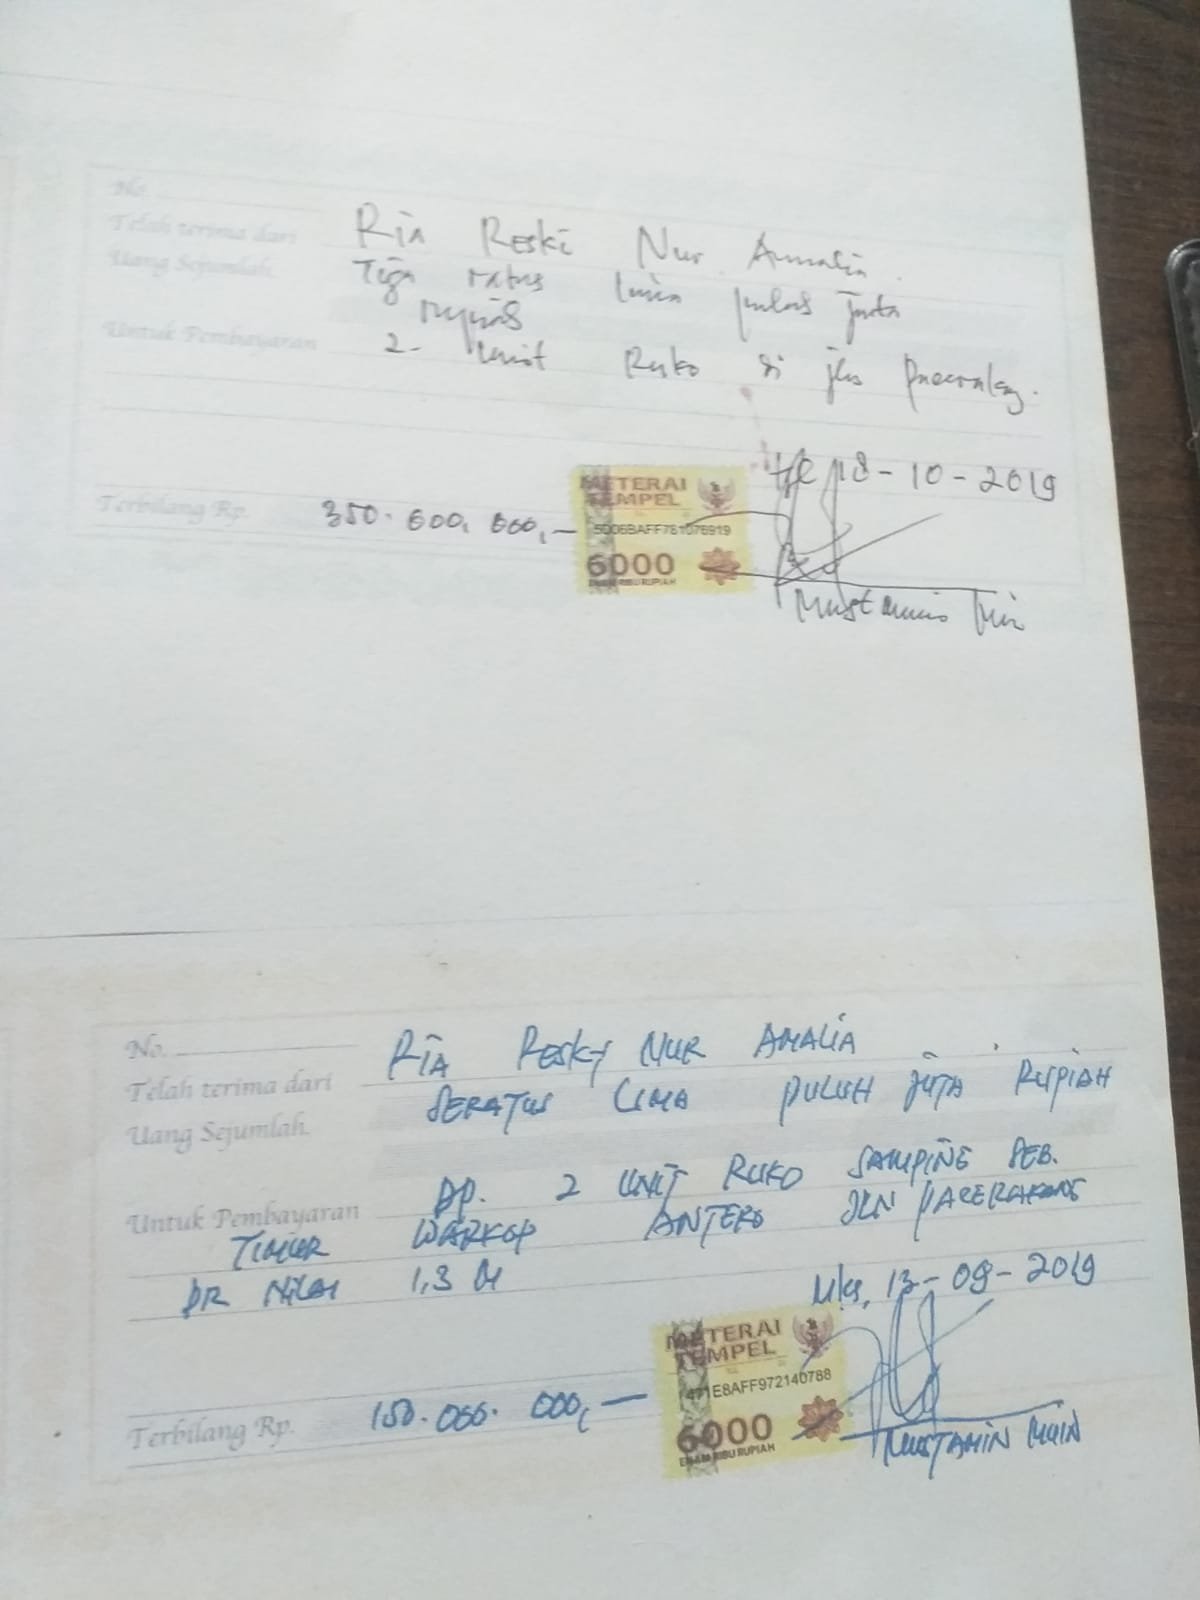 No.
Telah terima dari Ria Reski Nur Amalia.
Uang Sejumlah Tiga ratus lima puluh juta
rupiah
Untuk Pembayaran 2 unit Ruko di jln
Tgl 18-10-2019
Terbilang Rp. 350.000.000,-
METERAI
TEMPEL
5D06BAFF781076919
6000
ENAM RIBU RUPIAH
Mustamin
No.
Telah terima dari RIA RESKY NUR AMALIA
Uang Sejumlah SERATUS LIMA PULUH JUTA RUPIAH
Untuk Pembayaran DP. 2 UNIT RUKO SAMPING SEB.
TIMUR WARKOP ANTERO JLN PACERAKANG
DR NILAI 1,3 M
Mks, 13-09-2019
METERAI
TEMPEL
471E8AFF972140788
6000
ENAM RIBU RUPIAH
Terbilang Rp. 150.000.000,-
MUSTAMIN MUIN